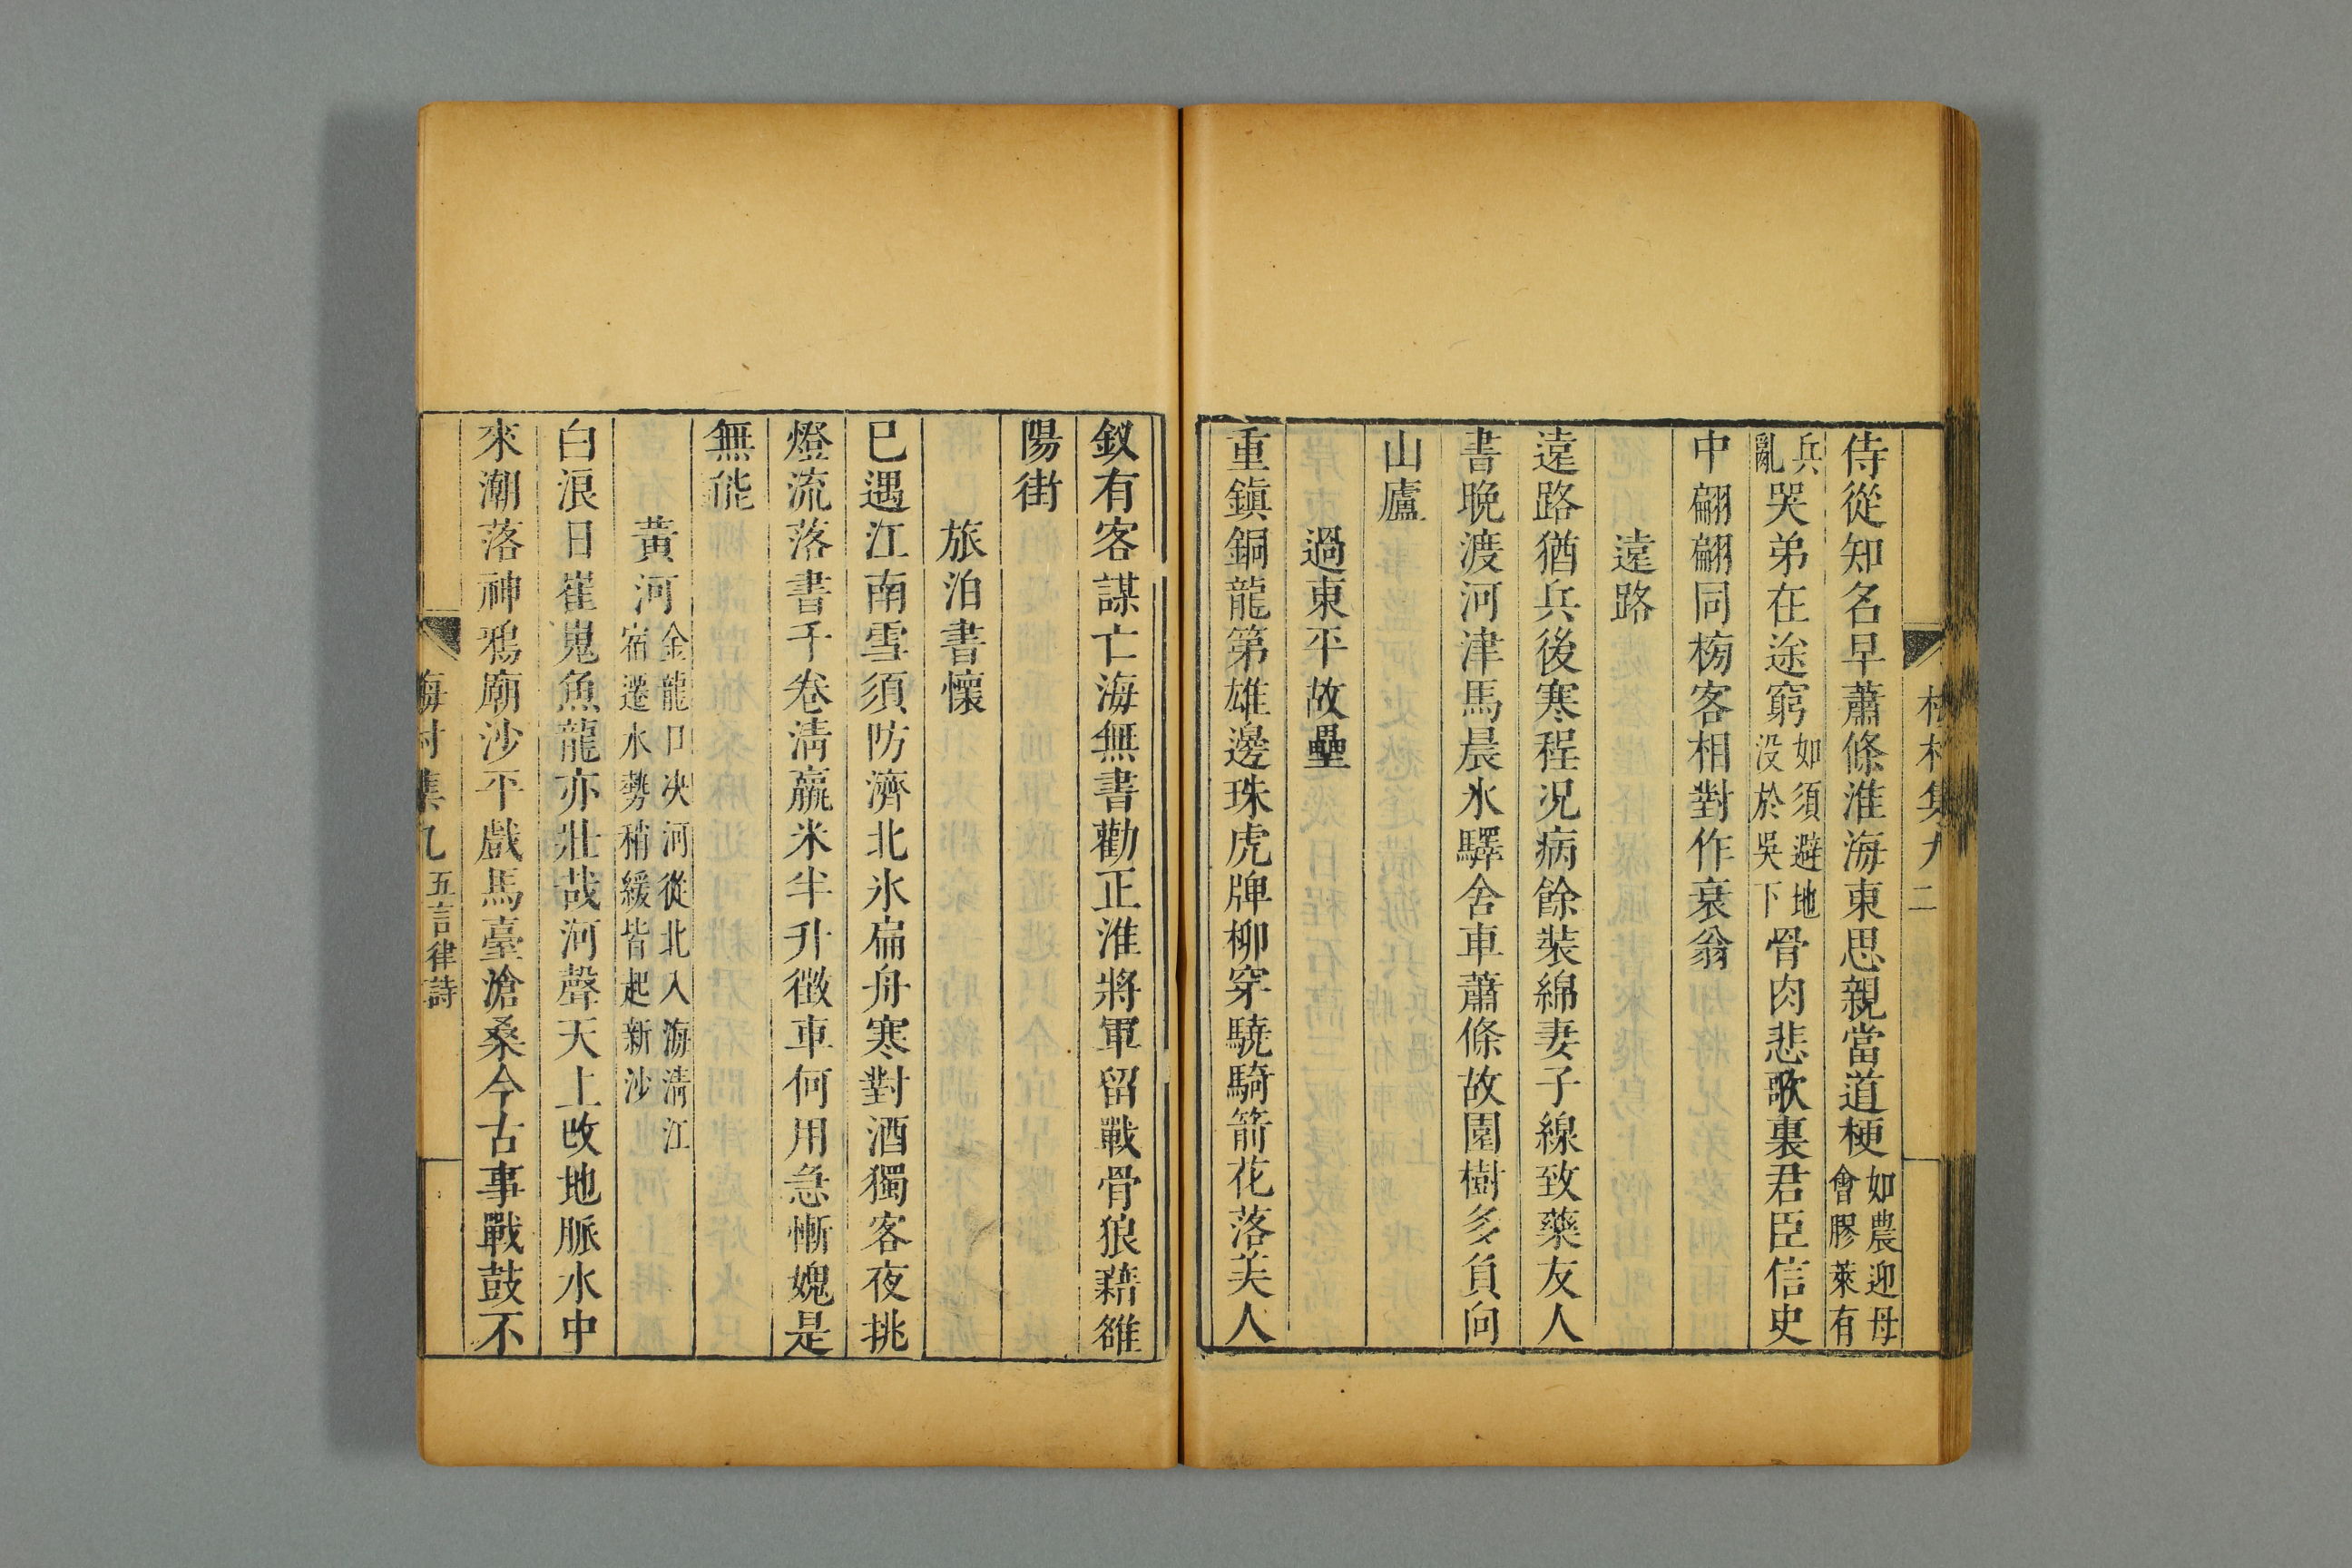 侍從知名早蕭條淮海東思親當道梗如農迎母會膠萊有
兵亂哭弟在途窮如須避地没於吳下骨肉悲歌裏君臣信史
中翩翩同榜客相對作衰翁
遠路
遠路猶兵後寒程况病餘裝綿妻子線致藥友人
書晚渡河津馬晨氷驛舍車蕭條故園樹多負向
山廬
過東平故壘
重鎮銅龍第雄邊珠虎牌柳穿驍騎箭花落美人
釵有客謀亡海無書勸正淮將軍留戰骨狼藉雒
陽街
旅泊書懷
已遇江南雪須防濟北氷扁舟寒對酒獨客夜挑
燈流落書千卷淸羸米半升徵車何用急慚媿是
無能
黃河金龍口决河從北入海淸江宿遷水勢稍緩皆起新沙
白浪日崔嵬魚龍亦壯哉河聲天上改地脈水中
來潮落神鴉廟沙平戲馬臺滄桑今古事戰鼓不
集九 五言律詩
村集九 二